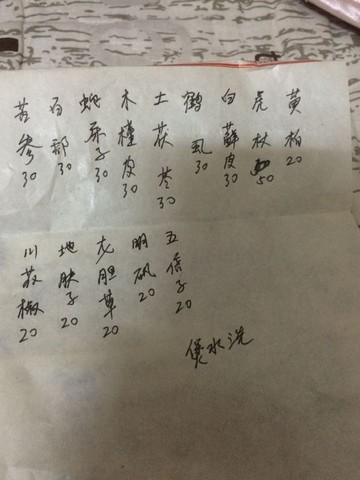 苦参30
百部30
蛇床子30
木槿皮30
土茯苓30
鹤虱30
白藓皮30
虎杖50
黄柏20
川花椒20
地肤子20
龙胆草20
明矾20
五倍子20
煲水洗